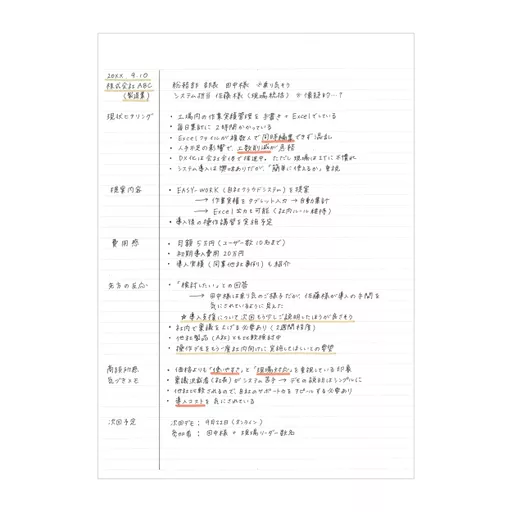 20XX 9.10
株式会社ABC
(製造業)
総務部 部長 田中様
システム担当 佐藤様 (現場統括) ※懐疑的…?
現状ヒアリング
・工場内の作業実績管理を手書き+Excelでしている
・毎日集計に2時間かかっている
・Excelファイルが複数人で同時編集できず混乱
・人手不足の影響で、工数削減が急務
・DX化は会社全体で推進中。ただし現場はITに不慣れ
・システム導入は興味ありだが、「簡単に使えるか」重視
提案内容
・EASY-WORK (自社クラウドシステム) を提案
→ 作業実績をタブレット入力 → 自動集計
→ Excel出力も可能 (社内ルール維持)
・導入後の操作講習を実施予定
費用感
・月額5万円 (ユーザー数10名まで)
・初期導入費用20万円
・導入実績 (同業他社事例) も紹介
先方の反応
・「検討したい」との回答
→ 田中様は乗り気のご様子だが、佐藤様が導入の手間を
気にされているように見えた
※導入支援について次回もう少しご説明したほうが良さそう
・社内で稟議を上げる必要あり (2週間程度)
・他社製品 (A社) とも比較検討中
・操作デモをもう一度社内向けに実施してほしいとの要望
商談所感
気づきメモ
・価格よりも「使いやすさ」と「現場対応」を重視している印象
・稟議決裁者 (社長) がシステム苦手 → デモの説明はシンプルに
・他社と比較されるので、自社のサポート力をアピールする必要あり
・導入コストを気にされている
次回予定
次回デモ: 9月22日 (オンライン)
参加者: 田中様 + 現場リーダー数名